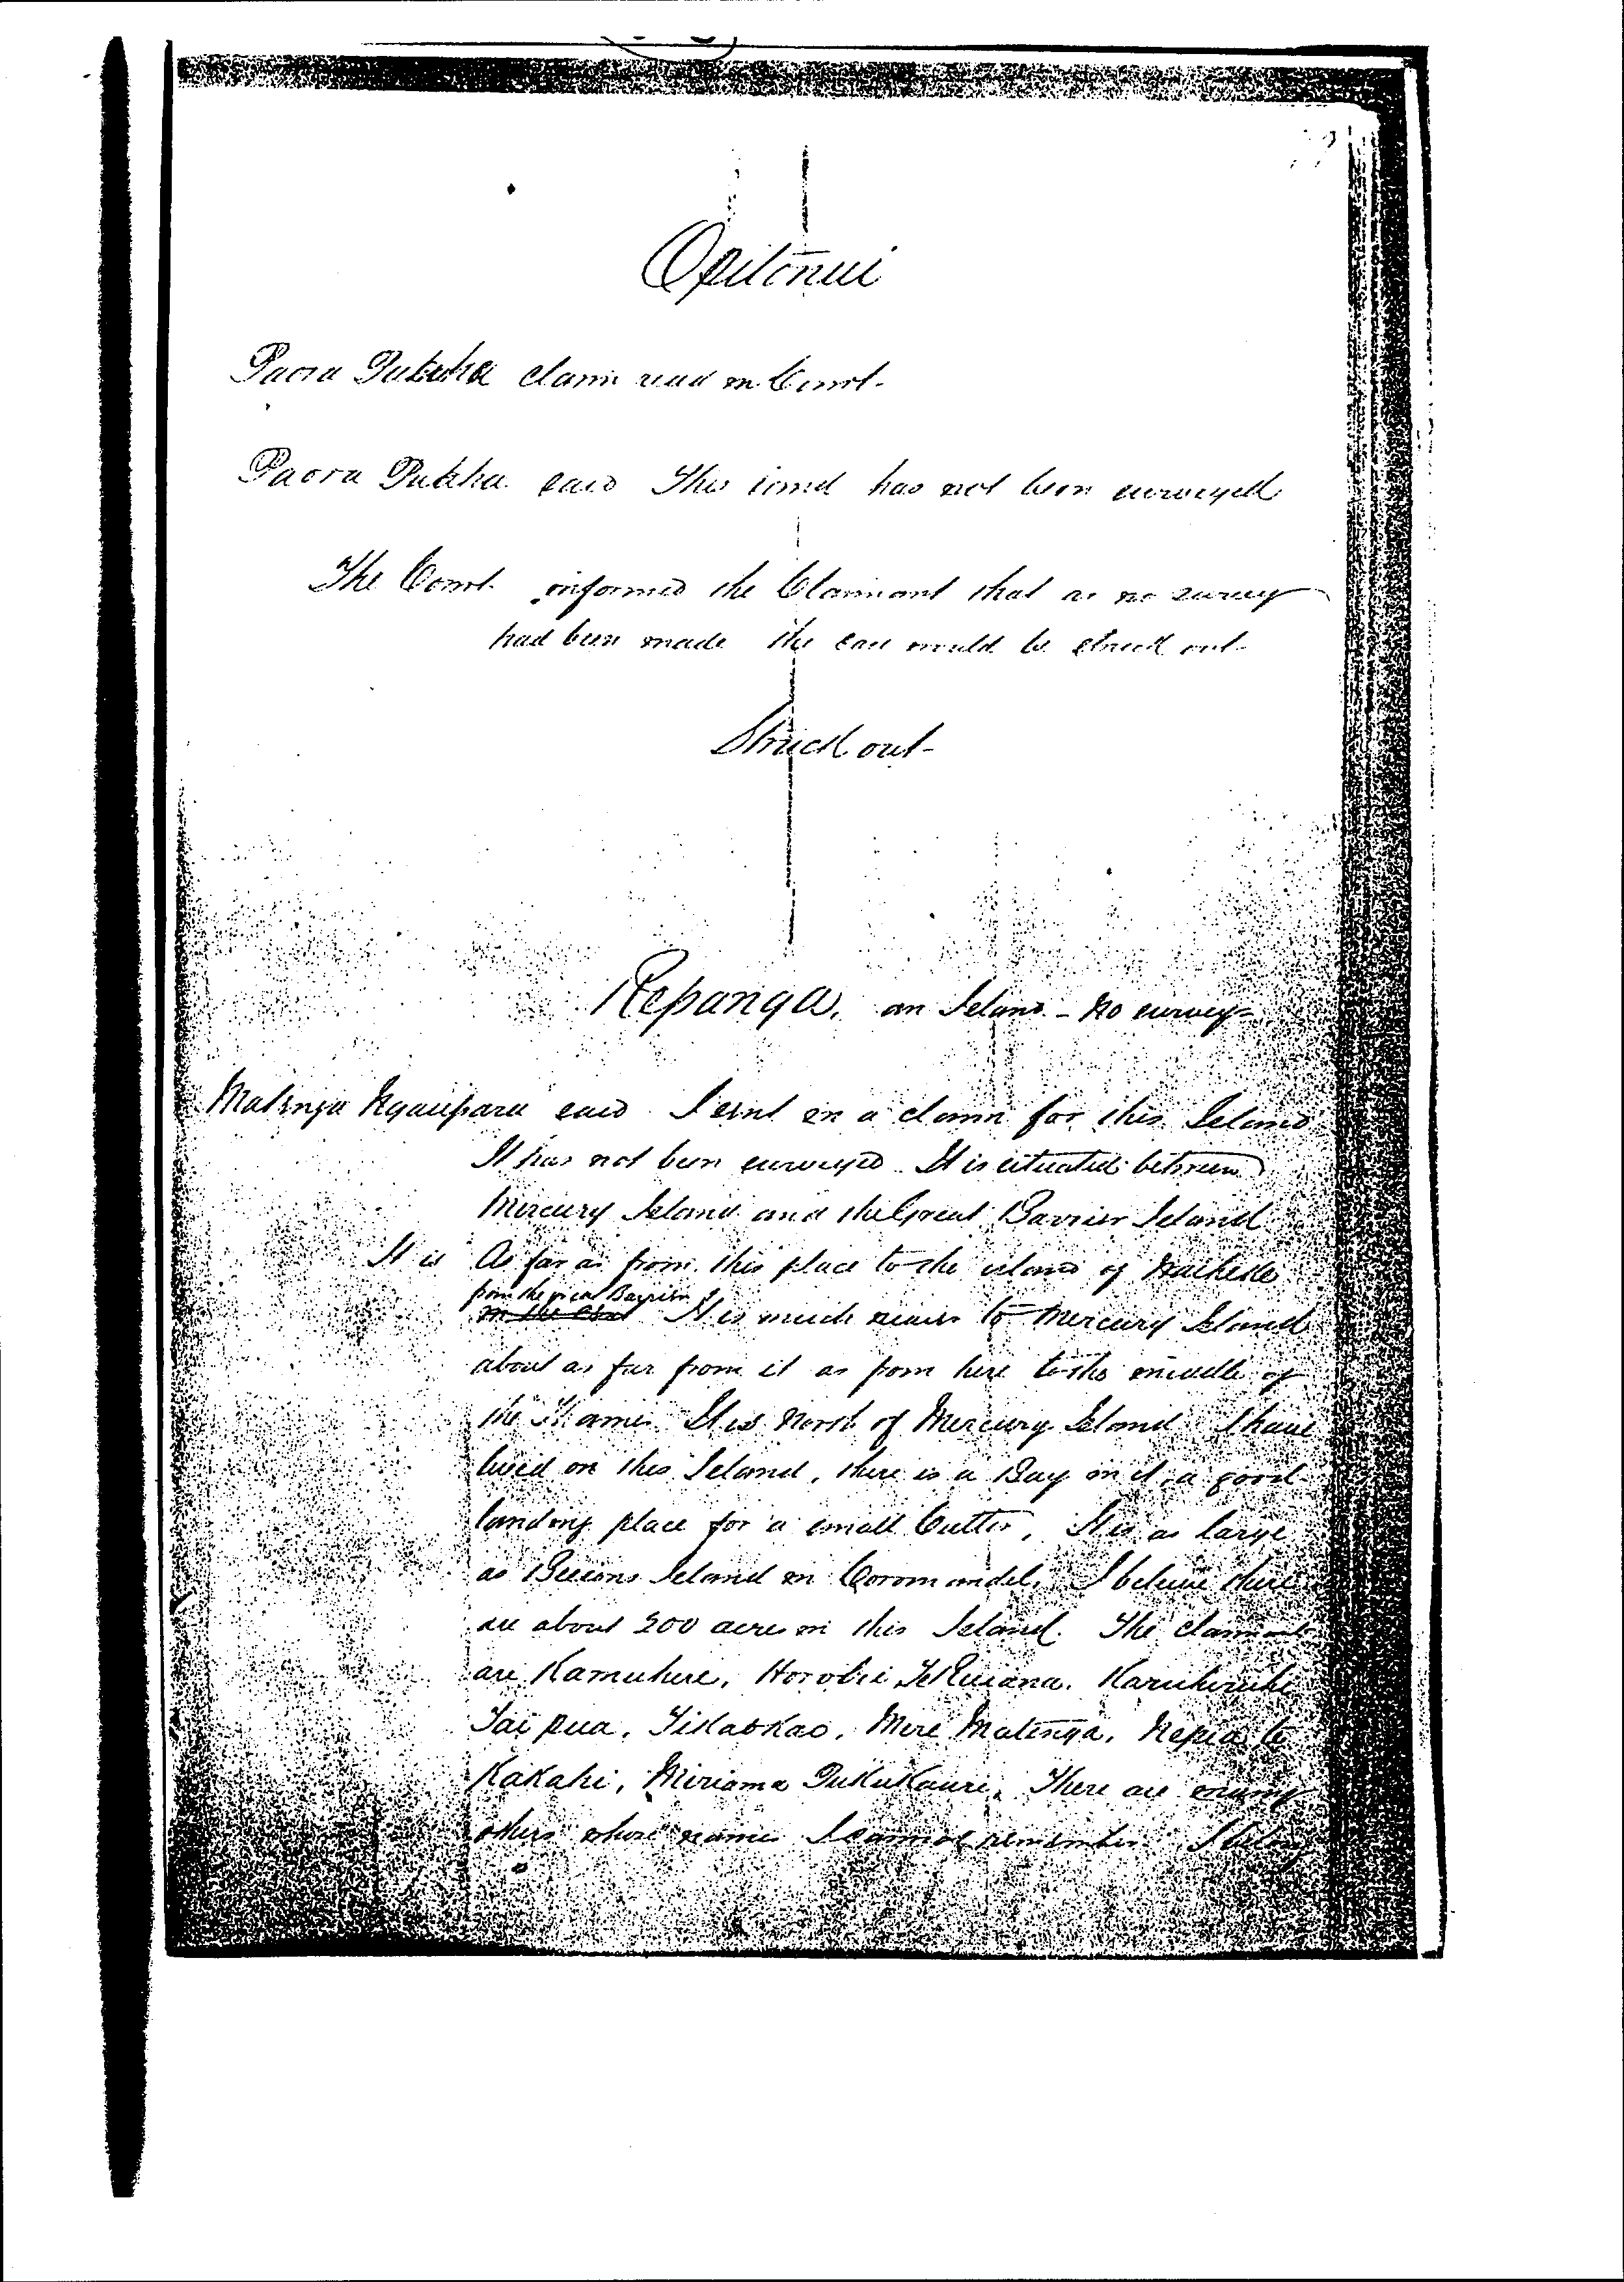 Opitonui
Paora Putuha claim read in Court.
Paora Putuha said This land has not been surveyed
The Court informed the Claimant that as no survey
had been made the case would be struck out.
Struck out
Repanga, an Island - No survey
Matenga Ngaupara said I sent in a claim for this Island
It has not been surveyed. It is situated between
Mercury Island and the Great Barrier Island
It is As far as from this place to the island of Waiheke
from the great Barrier
It is much nearer to Mercury Island
about as far from it as from here to the middle of
the Thames. It is North of Mercury Island I have
lived on this Island, there is a Bay in it, a good
landing place for a small Cutter, It is as large
as Beesons Island in Coromandel. I believe there
are about 200 acres in this Island. The claimants
are Kamuhere, Horotui, Karukeruke
Taipua, Tikaokao, Mere Matenga, Nepia te
Kakahi, Miriama Pukukauri. There are many
others whose names I cannot remember. I belong